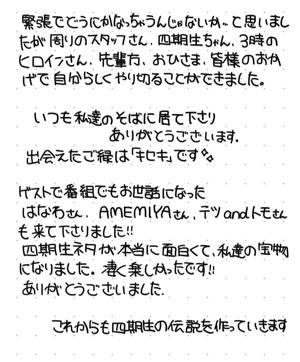 緊張でどうにかなっちゃうんじゃないか。と思いまし
たが周りのスタッフさん、四期生ちゃん、3時の
ヒロインさん、先輩方、おひさま、皆様のおか
げで自分らしくやり切ることができました。
いつも私達のそばに居て下さり
ありがとうございます。
出会えたご縁は「キセキ」です✨
ゲストで番組でもお世話になった
はなわさん、AMEMIYAさん、テツandトモさん
も来て下さりました!!
四期生ネタが本当に面白くて、私達の宝物
になりました。凄く楽しかったです!!
ありがとうございました。
これからも四期生の伝説を作っていきます